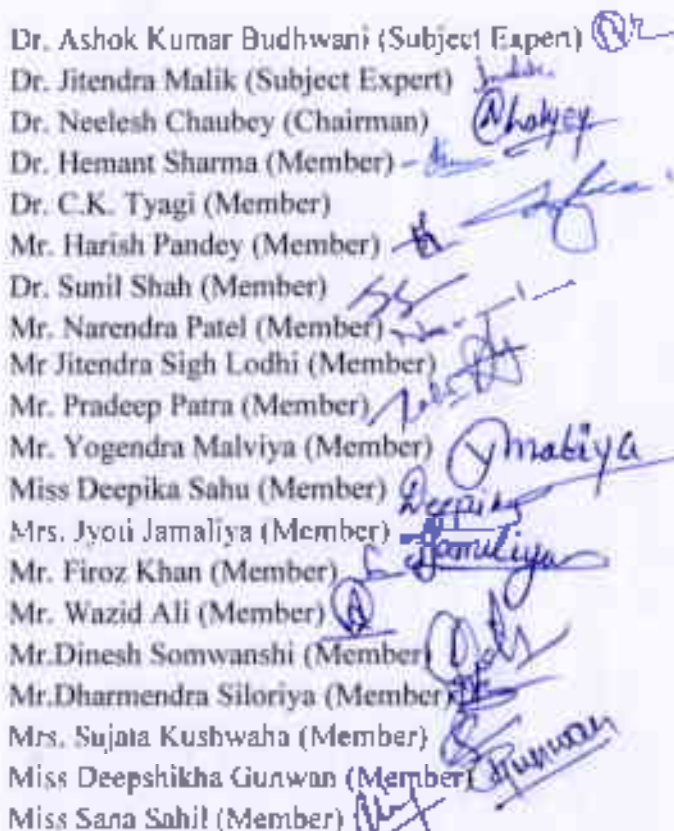 Dr. Ashok Kumar Budhwani (Subject Expert)
Dr. Jitendra Malik (Subject Expert)
Dr. Neelesh Chaubey (Chairman)
Dr. Hemant Sharma (Member) -
Dr. C.K. Tyagi (Member)
Mr. Harish Pandey (Member)
Dr. Sunil Shah (Member)
Mr. Narendra Patel (Member)
Mr Jitendra Sigh Lodhi (Member)
Mr. Pradeep Patra (Member)
Mr. Yogendra Malviya (Member)
Miss Deepika Sahu (Member) Deepika
Mrs. Jyoti Jamaliya (Member) Jamuliya
Mr. Firoz Khan (Member)
Mr. Wazid Ali (Member)
Mr.Dinesh Somwanshi (Member)
Mr.Dharmendra Siloriya (Member)
Mrs. Sujata Kushwaha (Member)
Miss Deepshikha Gunwan (Member) Gunwan
Miss Sana Sahil (Member)